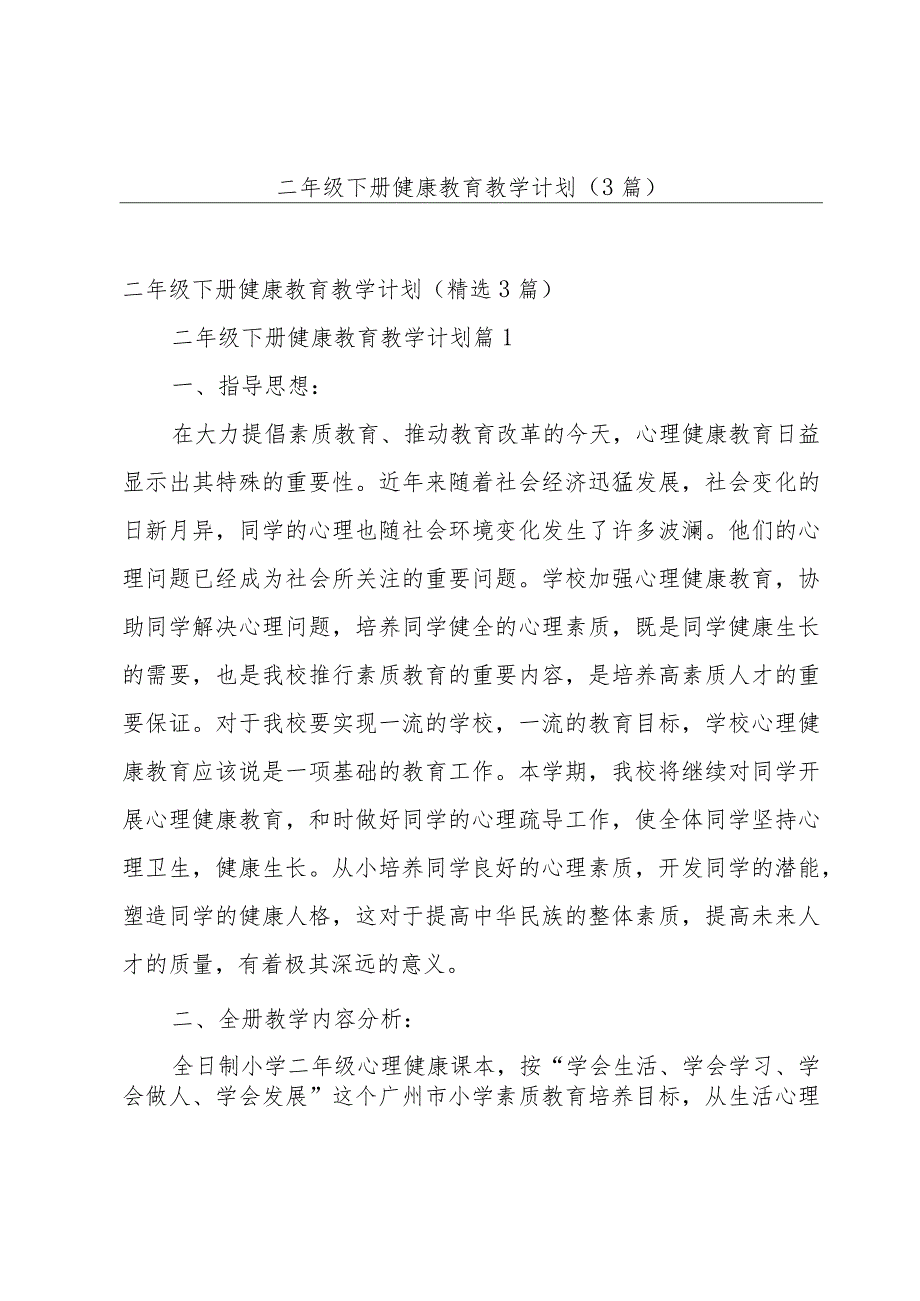 二年级下册健康教育教学计划（3 篇）
二年级下册健康教育教学计划（精选 3 篇）
二年级下册健康教育教学计划篇 1
一、指导思想：
在大力提倡素质教育、推动教育改革的今天，心理健康教育日益
显示出其特殊的重要性。近年来随着社会经济迅猛发展，社会变化的
日新月异，同学的心理也随社会环境变化发生了许多波澜。他们的心
理问题已经成为社会所关注的重要问题。学校加强心理健康教育，协
助同学解决心理问题，培养同学健全的心理素质，既是同学健康生长
的需要，也是我校推行素质教育的重要内容，是培养高素质人才的重
要保证。对于我校要实现一流的学校，一流的教育目标，学校心理健
康教育应该说是一项基础的教育工作。本学期，我校将继续对同学开
展心理健康教育，和时做好同学的心理疏导工作，使全体同学坚持心
理卫生，健康生长。从小培养同学良好的心理素质，开发同学的潜能，
塑造同学的健康人格，这对于提高中华民族的整体素质，提高未来人
才的质量，有着极其深远的意义。
二、全册教学内容分析：
全日制小学二年级心理健康课本，按“学会生活、学会学习、学
会做人、学会发展”这个广州市小学素质教育培养目标，从生活心理